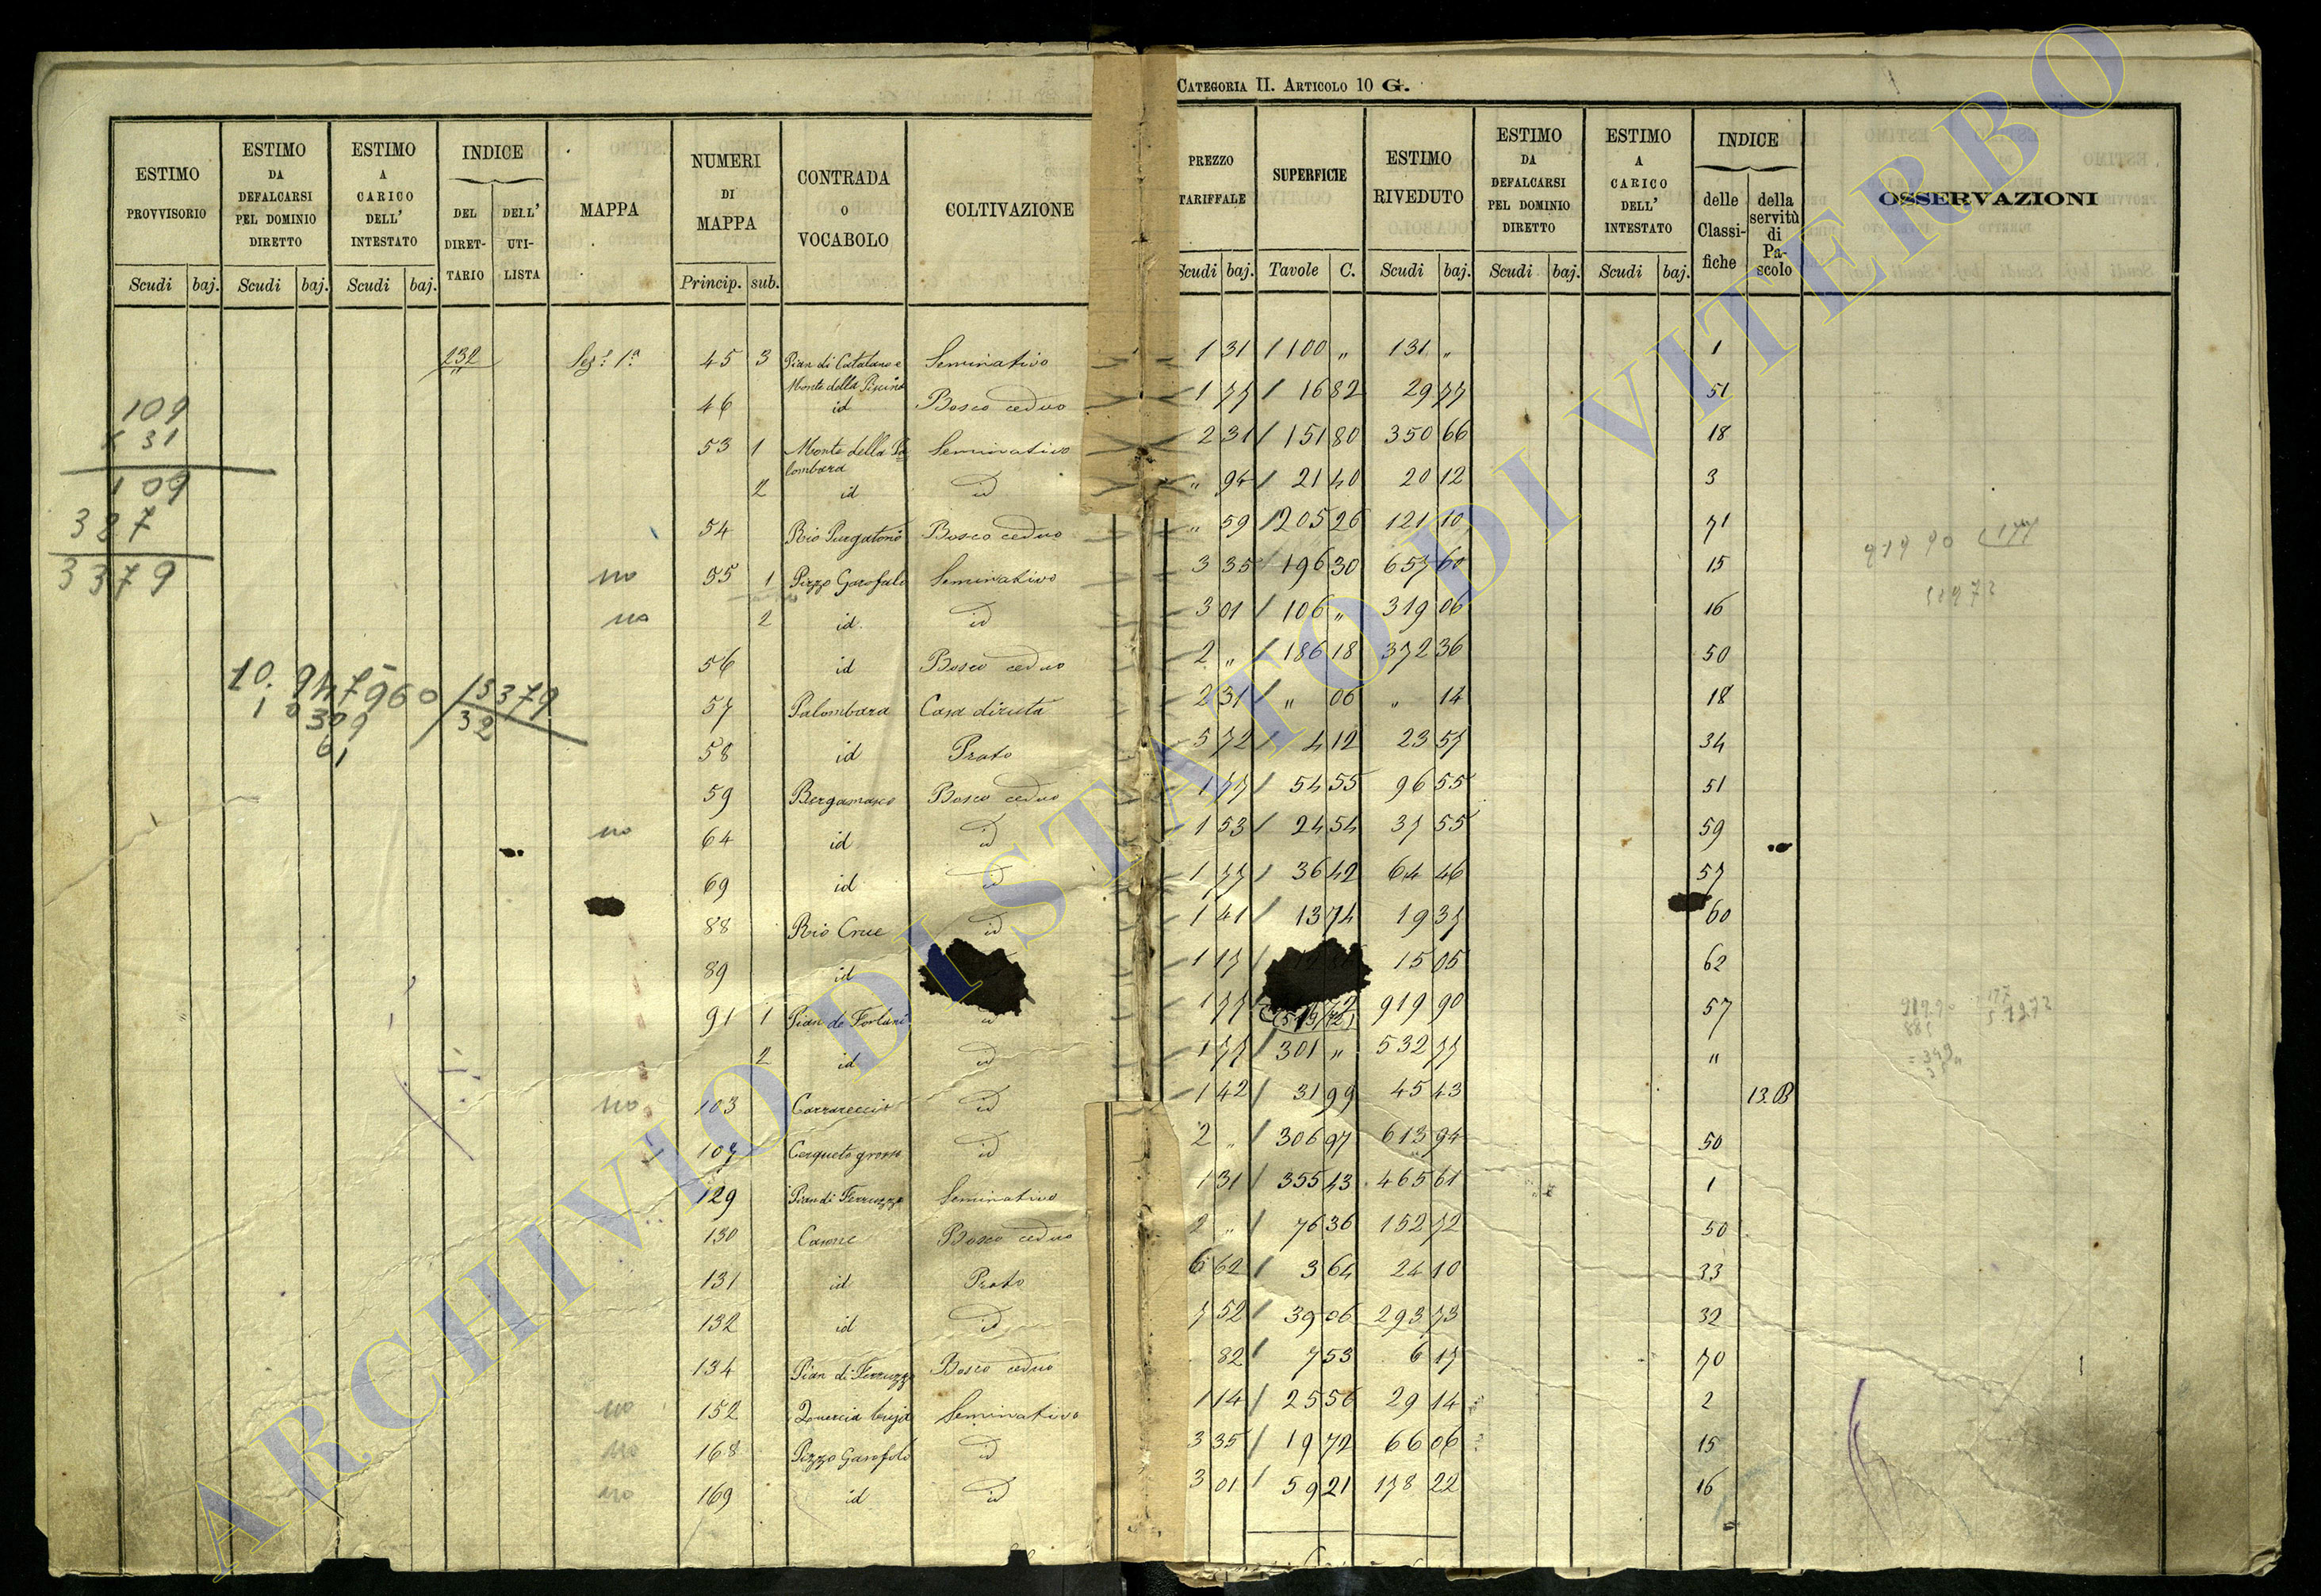 CATEGORIA II. ARTICOLO 10 G.
ESTIMO PROVVISORIO Scudi baj.
ESTIMO DA DEFALCARSI PEL DOMINIO DIRETTO Scudi baj.
ESTIMO A CARICO DELL' INTESTATO Scudi baj.
INDICE DEL DIRET-TARIO DELL' UTI-LISTA
MAPPA
NUMERI DI MAPPA Princip. sub.
CONTRADA O VOCABOLO
COLTIVAZIONE
PREZZO TARIFFALE Scudi baj.
SUPERFICIE Tavole C.
ESTIMO RIVEDUTO Scudi baj.
ESTIMO DA DEFALCARSI PEL DOMINIO DIRETTO Scudi baj.
ESTIMO A CARICO DELL' INTESTATO Scudi baj.
INDICE delle Classi-fiche della servitù di Pa-scolo
OSSERVAZIONI
232 Sez.e 1a 45 3 Pian di Catalano e Seminativo 1 31 / 100 " 131 " 1
Monte della Piscina
46 id Bosco ceduo 1 77 / 16 82 29 77 51
53 1 Monte della Pa Seminativo 2 31 / 151 80 350 66 18
lombara
2 id id " 94 / 21 40 20 12 3
54 Rio Purgatorio Bosco ceduo " 59 / 205 26 121 10 71
no 55 1 Pizzo Garofalo Seminativo 3 35 / 196 30 657 60 15
no 2 id id 3 01 / 106 " 319 06 16
56 id Bosco ceduo 2 " / 186 18 372 36 50
57 Palombara Casa diruta 2 31 / " 06 " 14 18
58 id Prato 5 72 / 4 12 23 57 34
59 Bergamasco Bosco ceduo 1 77 / 54 55 96 55 51
no 64 id id 1 53 / 24 54 37 55 59
69 id id 1 77 / 36 42 64 46 57
88 Rio Crue id 1 41 / 13 74 19 37 60
89 id 1 17 / 15 05 62
91 1 Pian de Fortuni id 1 77 / 72 919 90 57
(519/72)
2 id id 1 77 / 301 " 532 77 "
no 103 Carrareccio id 1 42 / 31 99 45 43 13.B
107 Cerqueto grosso id 2 " / 306 97 613 94 50
129 Pian di Ferruzzo Seminativo 1 31 / 355 43 465 61 1
130 Casone Bosco ceduo 2 " / 76 36 152 72 50
131 id Prato 6 62 / 3 64 24 10 33
132 id id 7 52 / 39 06 293 73 32
134 Pian di Ferruzzo Bosco ceduo 82 / 7 53 6 17 70
no 152 Quercia bugia Seminativo 1 14 / 25 56 29 14 2
no 168 Pizzo Garofolo id 3 35 / 19 72 66 06 15
no 169 id id 3 01 / 59 21 178 22 16
109
31
109
327
3379
10. 947960 / 15379
1 0309 32
61
919 90 177
919.90 177
885
= 349
ARCHIVIO DI STATO DI VITERBO